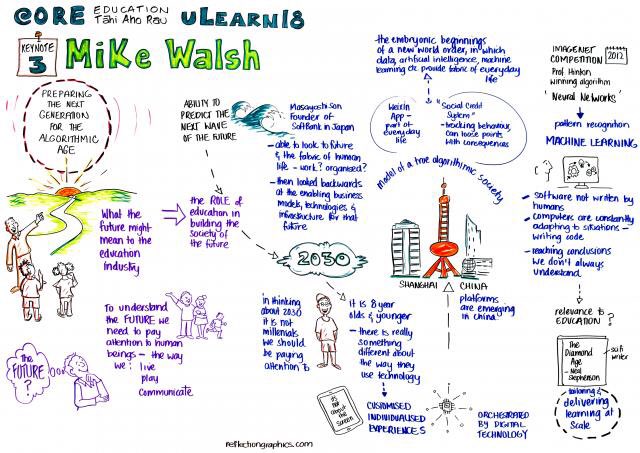 CORE EDUCATION
Tāhi Aho Rau
uLearn18
KEYNOTE
3
Mike Walsh
PREPARING
THE NEXT
GENERATION
FOR THE
ALGORITHMIC
AGE
What the
future might
mean to the
education
industry
the ROLE of
education in
building the
society of
the future
To understand
the FUTURE we
need to pay
attention to human
beings - the way
we: live
play
communicate
The
FUTURE
?
ABILITY TO
PREDICT THE
NEXT WAVE
OF THE FUTURE
Masayoshi Son
Founder of
SoftBank in Japan
- able to look to future
& the fabric of human
life - work? organised?
- then looked backwards
at the enabling business
models, technologies &
infrastructure for that
future
2030
in thinking
about 2030
it is not
millenials
we should
be paying
attention to
it is 8 year
olds & younger
- there is really
something
different about
the way they
use technology
it's
not
about the
screen
CUSTOMISED
INDIVIDUALISED
EXPERIENCES
the embryonic beginnings
of a new world order, in which
data, artificial intelligence, machine
learning etc provide fabric of everyday
life
WeiXin
App -
part of
everyday
life
"Social Credit
System"
- tracking behaviour,
can lose points
with consequences
model of a true algorithmic society
SHANGHAI
CHINA
platforms
are emerging
in China
ORCHESTRATED
BY DIGITAL
TECHNOLOGY
IMAGENET
COMPETITION
2012
Prof. Hinton
winning algorithm
'Neural Networks'
pattern recognition
MACHINE LEARNING
- software not written by
humans
- computers are constantly
adapting to situations -
writing code
- reaching conclusions
we don't always
understand
relevance to
EDUCATION?
The
Diamond
Age
- Neal
Stephenson
scifi
writer
tailoring &
delivering
learning at
scale
reflectiongraphics.com